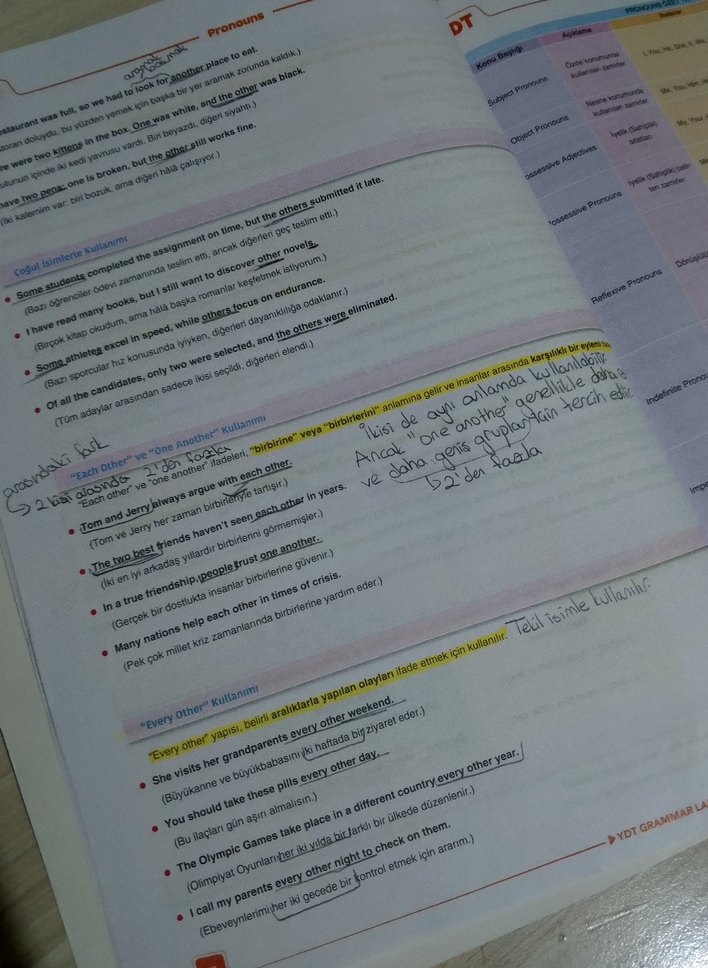 Pronouns
aramak
bakmak
restaurant was full, so we had to look for another place to eat.
doluydu, bu yüzden yemek için başka bir yer aramak zorunda kaldık.)
were two kittens in the box. One was white, and the other was black.
kutunun içinde iki kedi yavrusu vardı. Biri beyazdı, diğeri siyahtı.)
have two pens: one is broken, but the other still works fine.
(İki kalemim var: biri bozuk, ama diğeri hâlâ çalışıyor.)
Çoğul İsimlerle Kullanımı
• Some students completed the assignment on time, but the others submitted it late.
(Bazı öğrenciler ödevi zamanında teslim etti, ancak diğerleri geç teslim etti.)
• I have read many books, but I still want to discover other novels.
(Birçok kitap okudum, ama hâlâ başka romanlar keşfetmek istiyorum.)
• Some athletes excel in speed, while others focus on endurance.
(Bazı sporcular hız konusunda iyiyken, diğerleri dayanıklılığa odaklanır.)
• Of all the candidates, only two were selected, and the others were eliminated.
(Tüm adaylar arasından sadece ikisi seçildi, diğerleri elendi.)
"Each Other" ve "One Another" Kullanımı
arasındaki fark
2 kişi arasında 2'den fazla
"Each other" ve "one another" ifadeleri, "birbirine" veya "birbirlerini" anlamına gelir ve insanlar arasında karşılıklı bir eylemi
İkisi de aynı anlamda kullanılabilir
Ancak "one another" genellikle daha
ve daha geniş gruplar için tercih edilir
2'den fazla
• Tom and Jerry always argue with each other.
(Tom ve Jerry her zaman birbirleriyle tartışır.)
• The two best friends haven't seen each other in years.
(İki en iyi arkadaş yıllardır birbirlerini görmemişler.)
• In a true friendship, people trust one another.
(Gerçek bir dostlukta insanlar birbirlerine güvenir.)
• Many nations help each other in times of crisis.
(Pek çok millet kriz zamanlarında birbirlerine yardım eder.)
"Every Other" Kullanımı
"Every other" yapısı, belirli aralıklarla yapılan olayları ifade etmek için kullanılır. Tekil isimle kullanılır.
• She visits her grandparents every other weekend.
(Büyükanne ve büyükbabasını iki haftada bir ziyaret eder.)
• You should take these pills every other day.
(Bu ilaçları gün aşırı almalısın.)
• The Olympic Games take place in a different country every other year.
(Olimpiyat Oyunları her iki yılda bir farklı bir ülkede düzenlenir.)
• I call my parents every other night to check on them.
(Ebeveynlerimi her iki gecede bir kontrol etmek için ararım.)
YDT GRAMMAR LA
DT
PRONOUNS ÖZET
Konu Başlığı
Açıklama
Subject Pronouns
Özne konumunda
kullanılan zamirler
I, You, He, She, It, We,
Object Pronouns
Nesne konumunda
kullanılan zamirler
Me, You, Him,
ossessive Adjectives
İyelik (Sahiplik)
sıfatları
My, Your,
ossessive Pronouns
İyelik (Sahiplik) belir-
ten zamirler
Reflexive Pronouns
Dönüşlülük
Indefinite Pronou
Impe